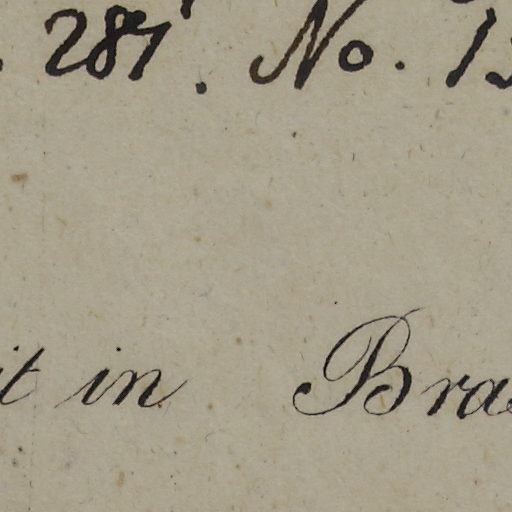 287. No. 1
it in Bra